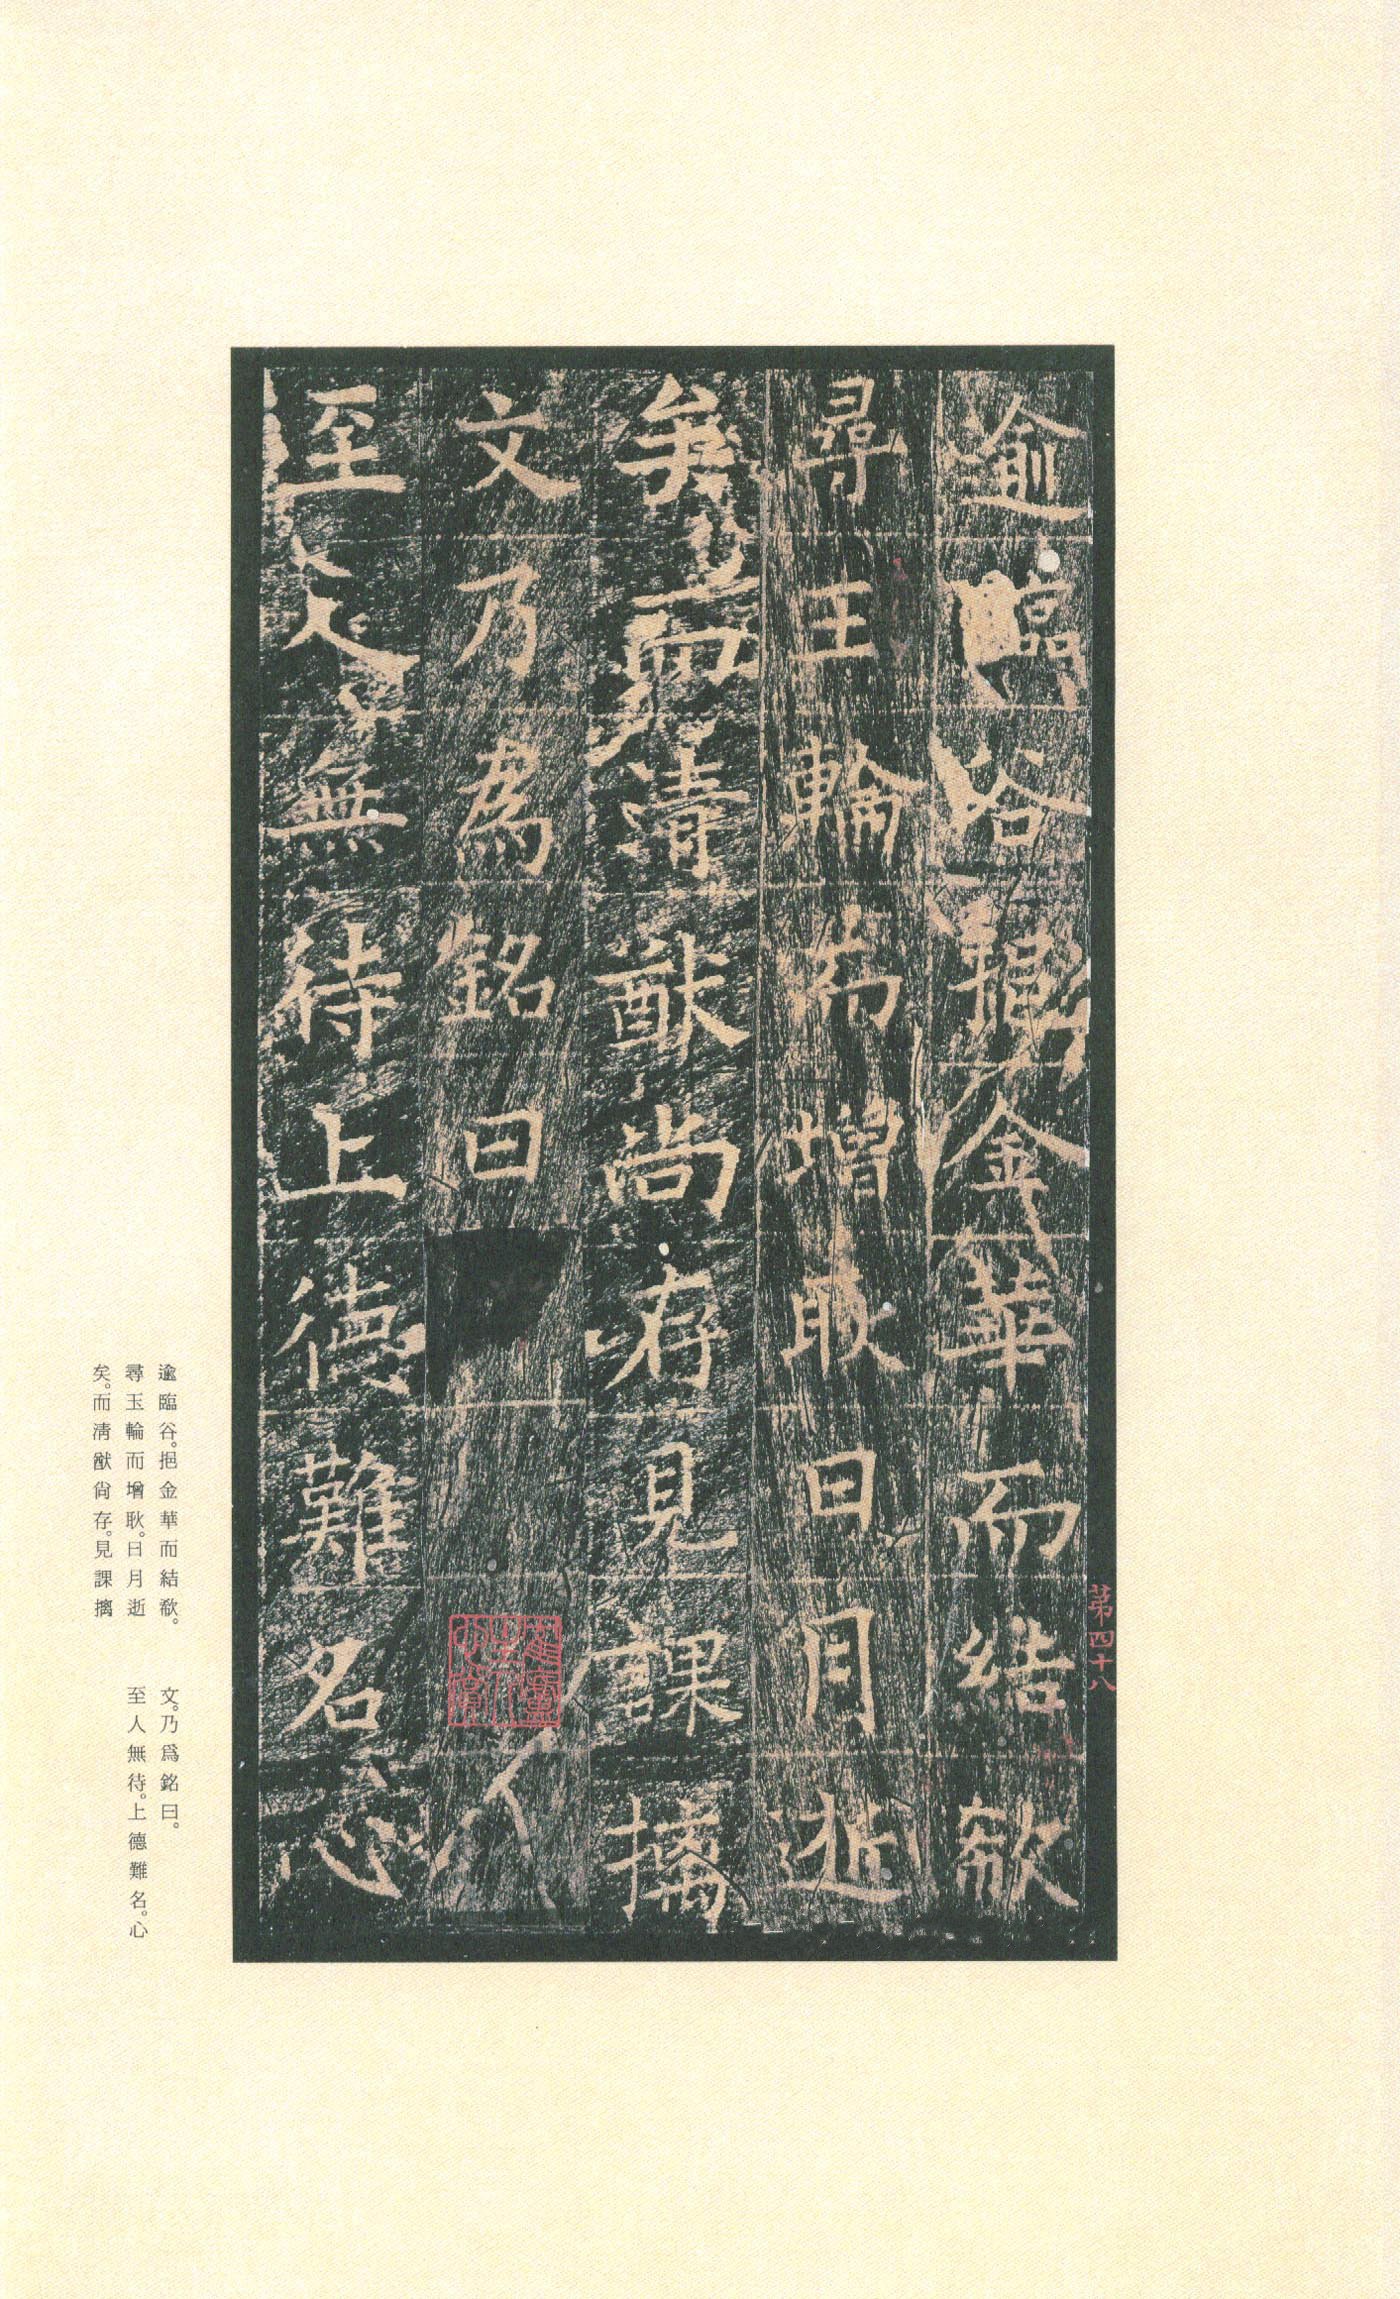 逾臨谷挹金華而結欷
尋玉輪而增耿日月逝
矣而清猷尚存見課摛
文乃為銘曰
至人無待上德難名心
第四十八
逾臨谷。挹金華而結欷。
尋玉輪而增耿。日月逝
矣。而清猷尚存。見課摛
文。乃爲銘曰。
至人無待。上德難名。心